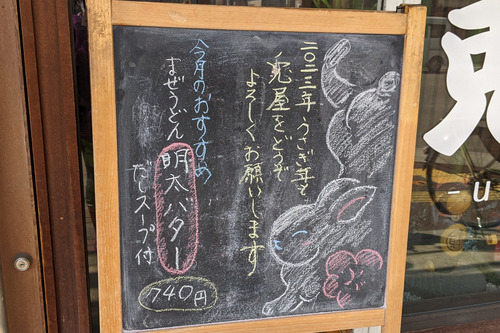 二〇二三年 うさぎ年も
兎屋をどうぞ
よろしくお願いします
今月のおすすめ
まぜうどん 明太バター
だしスープ付
740円